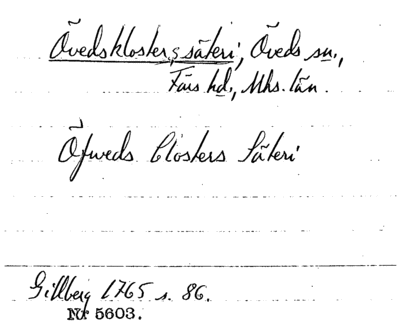 Övedsklosters säteri, Öveds sn.,
Färs hd., Mhs. län.
Öfweds Closters Säteri
Gillberg 1765 s. 86.
Nr 5603.